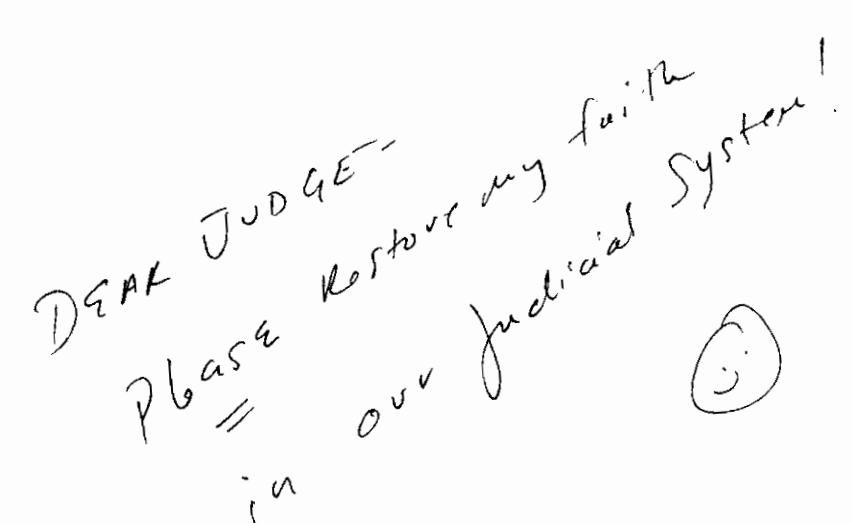 DEAR JUDGE-
Please Restore my faith
in our Judicial System!